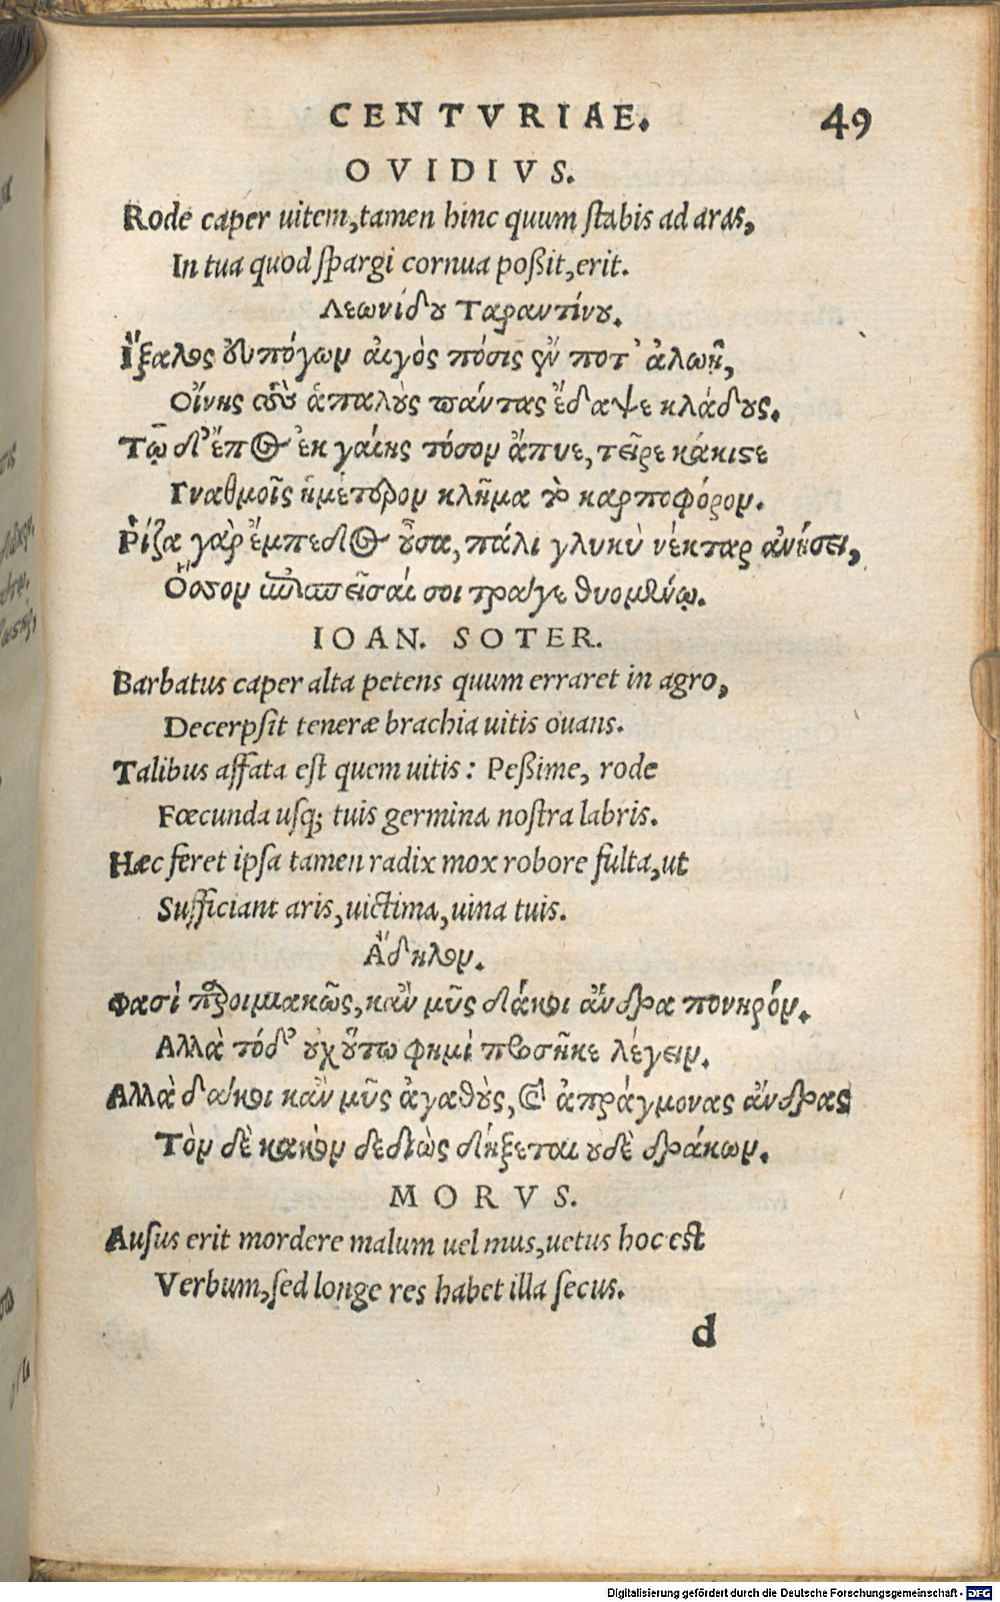 CENTVRIAE. 49
OVIDIVS.
Rode caper uitem, tamen hinc quum stabis ad aras,
In tua quod spargi cornua poßit, erit.
Λεωνίδου Ταραντίνου.
Ἴξαλος εὐπώγων αἰγὸς πόσις ἔν ποτ' ἀλωῇ,
Οἴνης τοὺς ἁπαλοὺς πάντας ἔδαψε κλάδους.
Τῷ δ' ἔπος ἐκ γαίης τόσον ἄπυε, κεῖρε κάκιστε
Γναθμοῖς ἡμέτερον κλῆμα τὸ καρποφόρον.
Ῥίζα γὰρ ἔμπεδος οὖσα, πάλι γλυκὺ νέκταρ ἀνήσει,
Ὅσσον ἐπισπεῖσαί σοι τράγε θυομένῳ.
IOAN. SOTER.
Barbatus caper alta petens quum erraret in agro,
Decerpsit teneræ brachia uitis ouans.
Talibus affata est quem uitis: Peßime, rode
Fœcunda usq; tuis germina nostra labris.
Hæc feret ipsa tamen radix mox robore fulta, ut
Sufficiant aris, uictima, uina tuis.
Ἄδηλον.
Φασὶ παροιμιακῶς, κἂν μῦς δάκοι ἄνδρα πονηρόν.
Ἀλλὰ τόδ' οὐχ οὕτω φημὶ προσῆκε λέγειν.
Ἀλλὰ δάκοι κἂν μῦς ἀγαθοὺς, καὶ ἀπράγμονας ἄνδρας
Τὸν δὲ κακὸν δεδιὼς δήξεται οὐδὲ δράκων.
MORVS.
Ausus erit mordere malum uel mus, uetus hoc est
Verbum, sed longe res habet illa secus.
d
Digitalisierung gefördert durch die Deutsche Forschungsgemeinschaft - DFG